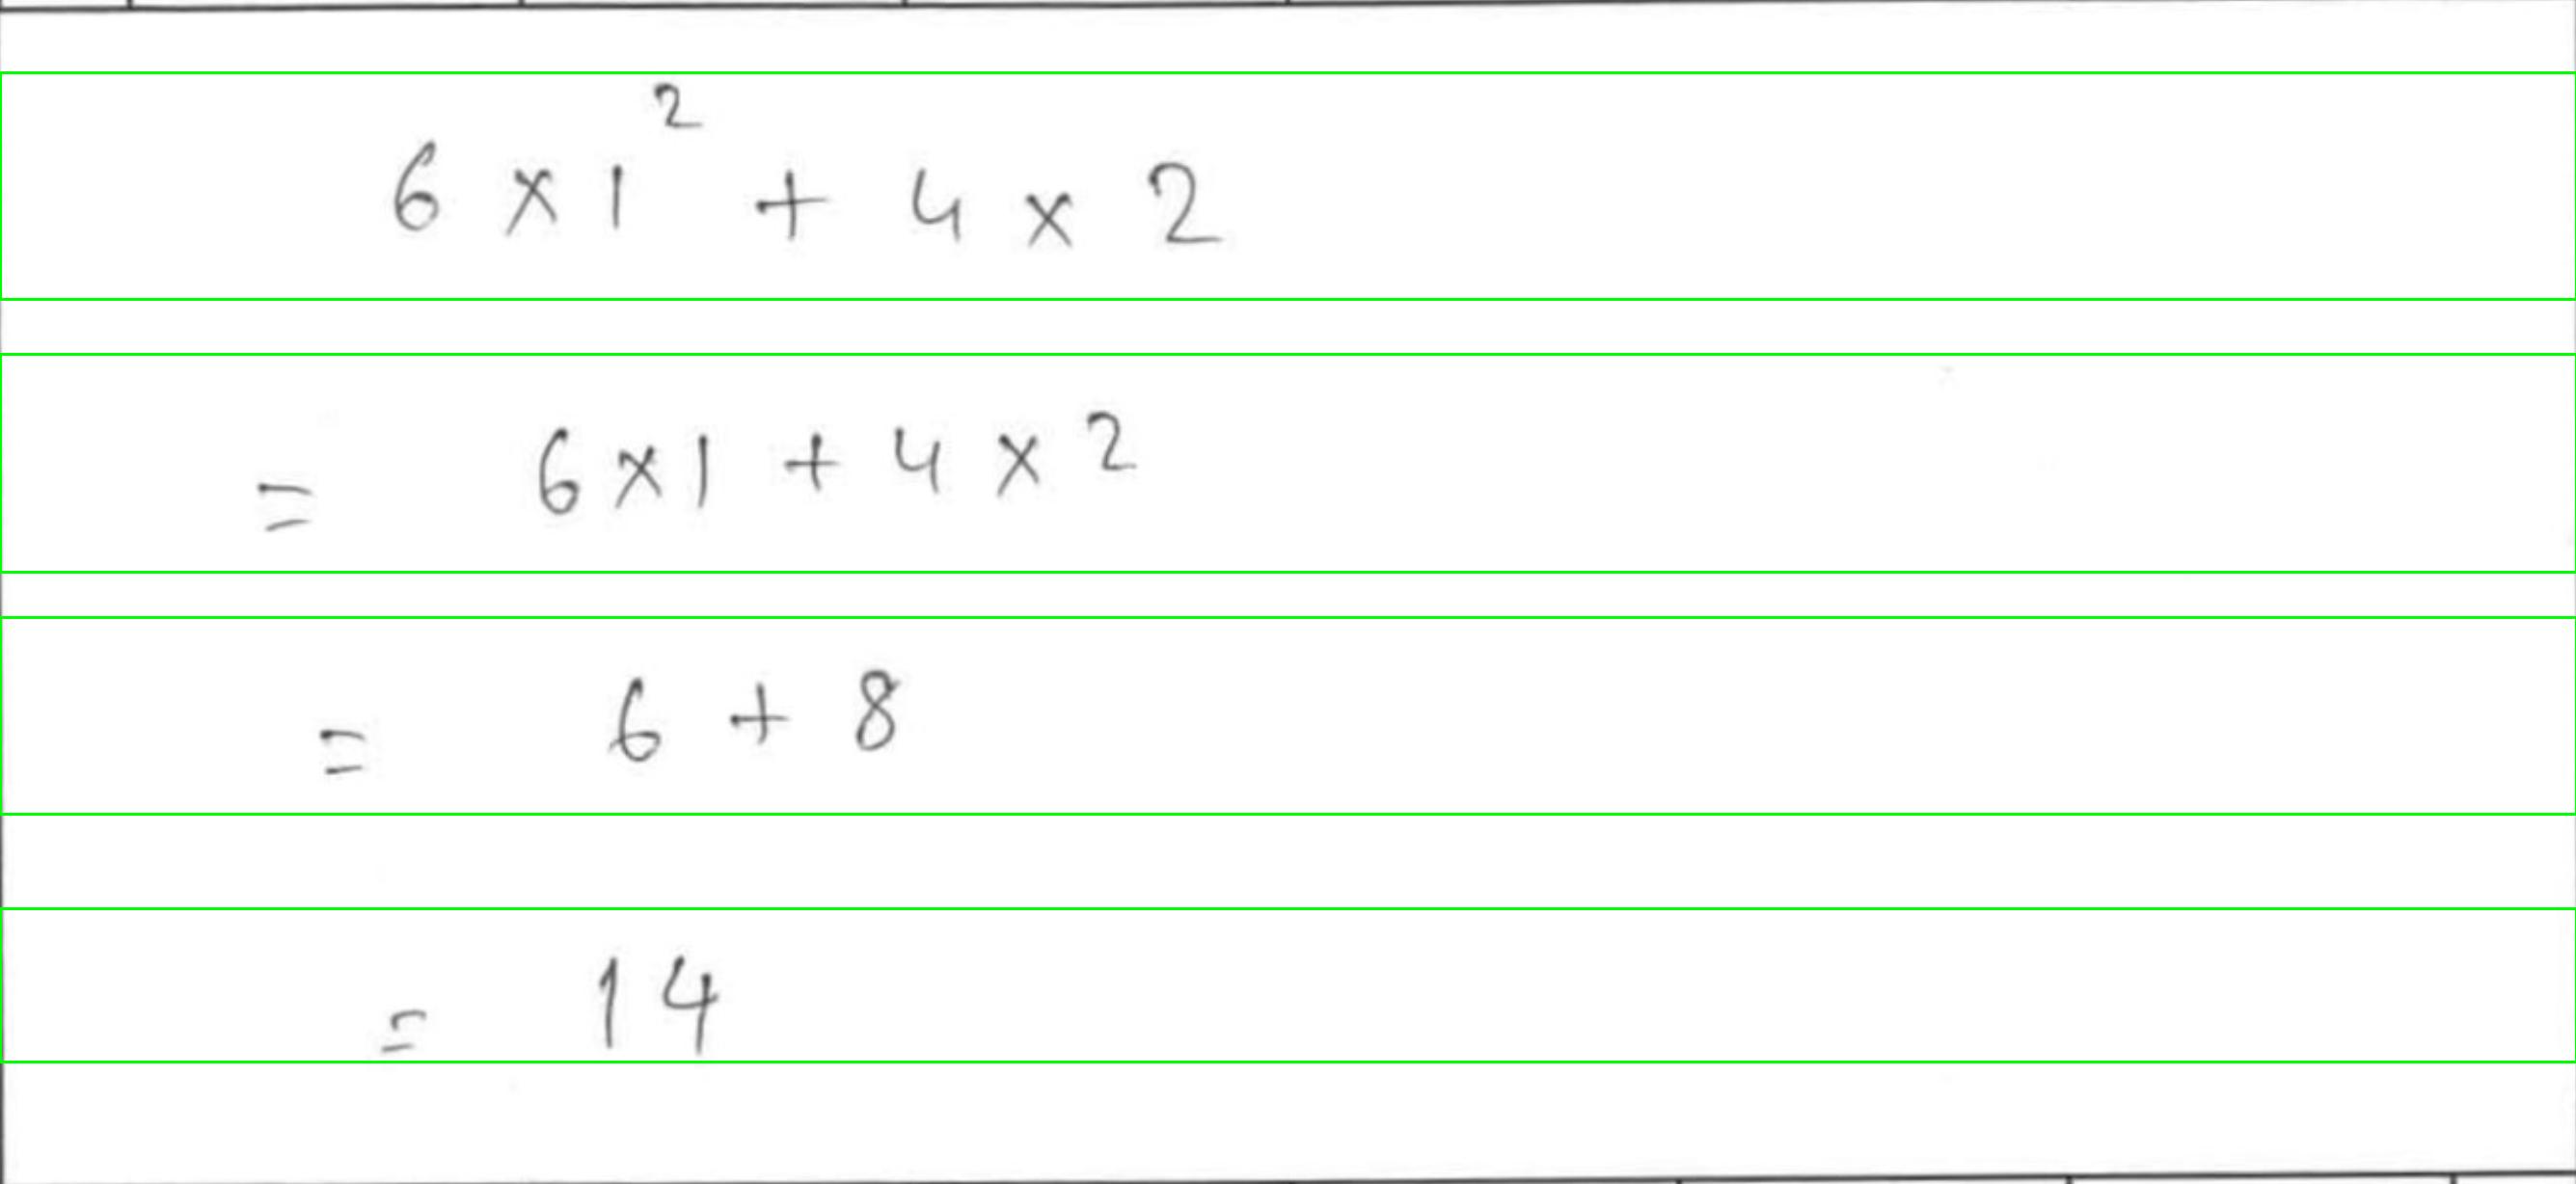 6 × 1² + 4 × 2
= 6 × 1 + 4 × 2
= 6 + 8
= 14